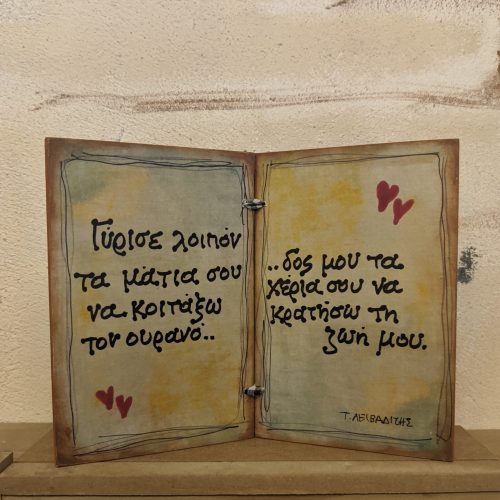 Γύρισε λοιπόν
τα μάτια σου
να κοιτάξω
τον ουρανό..
..δος μου τα
χέρια σου να
κρατήσω τη
ζωή μου.
Τ. ΛΕΙΒΑΔΙΤΗΣ